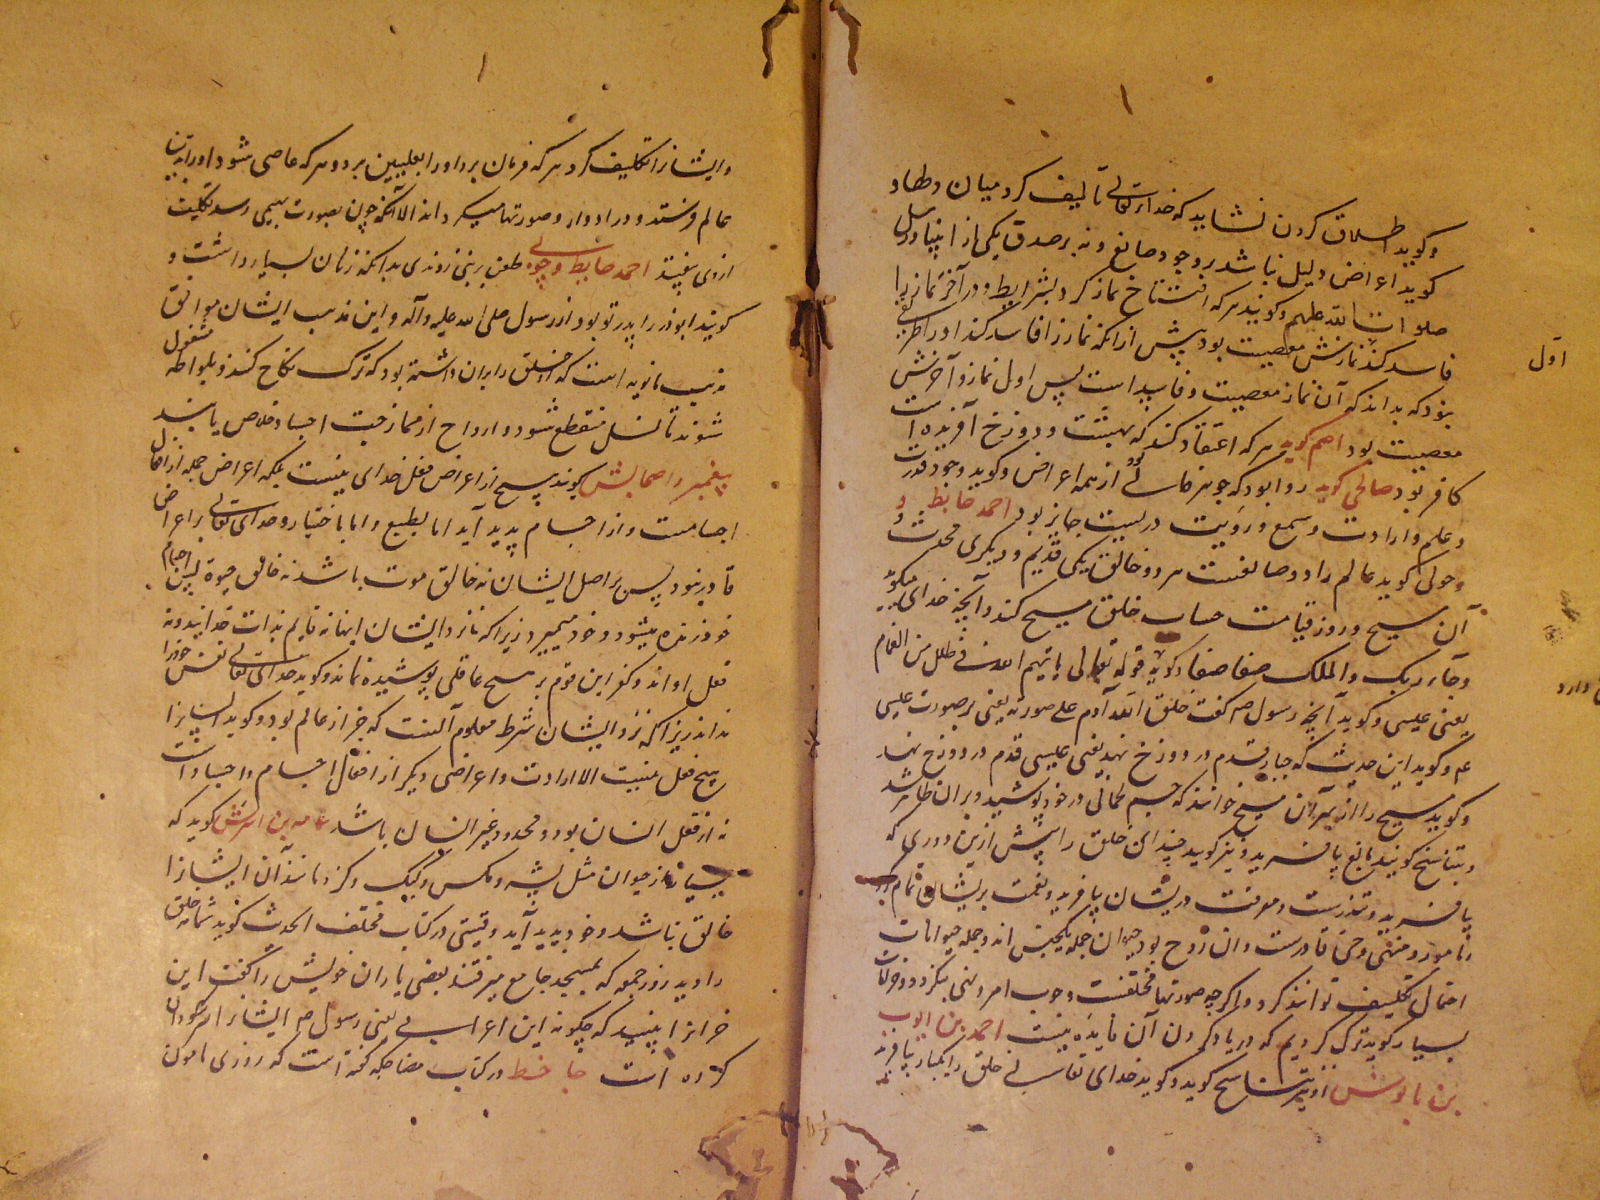 و گوید اطلاق کردن نشاید که خدای تعالی تألیف کرد میان دلها و
گوید اعراض دلیل نباشد بر وجود صانع و نه بر صدق یکی از انبیا و رسل
صلوات الله علیهم و گویند هر که افتتاح نماز کرد بشرایط و در آخر نماز را
فاسد کند نمازش معصیت بود پیش از آنکه نماز را فاسد کند او را طریقی
نبود که بداند که آن نماز معصیت و فاسد است پس اول نماز و آخرش
معصیت بود اصم گوید هر که اعتقاد کند که بهشت و دوزخ آفریده است
کافر بود صالحی گوید روا بود که جوهر خالی از همه اعراض و گوید وجود قدرت
و علم و ارادت و سمع و رؤیت در میت جایز بود احمد حابط و
و حولی گوید عالم را دو صانعست هر دو خالق یکی قدیم و دیگری محدث و
آن مسیح و روز قیامت حساب خلق مسیح کند و آنچه خدای میگوید
و جاء ربک و الملک صفا صفا و گوید قوله تعالی یاتیهم الله فی ظلل من الغمام
یعنی عیسی و گوید آنچه رسول ص گفت خلق الله آدم علی صورته یعنی بر صورت عیسی
ع و گوید این حدیث که جبار قدم در دوزخ نهد یعنی عیسی قدم در دوزخ نهد
و گوید مسیح را از بهر آن مسیح خوانند که جسم جسمانی در خود پوشید و بر آن ظاهر شد
و بتناسخ گویند بیافرید و نیز گوید خدای خلق را پیش ازین دوری که
بیافرید و تندرست و معرفت در ایشان بیافرید و نعمت بر ایشان تمام
و مامور و منهی و حی قادرست و آن روح بود حیوان جمله یکجنس اند و جمله حیوانات
احتمال تکلیف توانند کرد و اگر چه صورتها مختلفست وجوب امر و نهی
بسیار گوید ترک کردیم که در یاد کردن آن فایده نیست احمد بن ایوب
بن بانوش او نیز تناسخ گوید و گوید خدای تعالی خلق را یکبار بیافرید
اول
دارد
و ایشانرا تکلیف کرد هر که فرمان برد او را بعلیین برد و هر که عاصی شود او را بدین
عالم فرستد و در ادوار و صورتها میگرداند الا آنکه چون بصورت بهیمی رسد تکلیف
از وی بیفتد احمد حابط و حولی طعن بر نبی زدندی بدانکه زنان بسیار داشت و
گویند ابوذر زاهدتر بود از رسول صلی الله علیه و آله و این مذهب ایشان موافق
مذهب مانویه است که خلق را بران داشته بود که ترک نکاح کنند و بلواطه مشغول
شوند تا نسل منقطع شود و ارواح از ممازجت اجساد خلاص یابند
و اصحابش گویند هیچ از اعراض فعل خدای نیست بلکه اعراض جمله از افعال
اجسامست و از اجسام پدید آید اما بطبع و اما باختیار و خدای تعالی بر اعراض
قادر نبود پس بر اصل ایشان نه خالق موت باشد نه خالق حیوة پس اجسام
خود زنده میشود و خود میمیرد زیرا که نزد ایشان اینها نه قایم بذات خدایند و نه
فعل او اند و کفر این قوم بر هیچ عاقلی پوشیده نماند و گوید خدای تعالی نفس خود را
نداند زیرا که نزد ایشان شرط معلوم آنست که جز از عالم بود و گوید انسانرا
هیچ فعل نیست الا ارادت و اعراضی دیگر از افعال اجسام و اجساد است
نه از فعل انسان بود و محدود غیر انسان باشد ثمامه بن اشرس گوید که
بسیار از حیوان مثل پشه و مگس و کیک و کژدم مانند آن ایشانرا
خالق نباشد و خود پدید آید و قتیبی در کتاب مختلف الحدیث گوید ثمامه خلق
را دید روز جمعه که بمسجد جامع میرفتند بعضی یاران خویش را گفت این
خرانرا ببینید که چگونه این اعرابی یعنی رسول ص ایشانرا سرگردان
کرده است جاحظ در کتاب مضاحک گفته است که روزی مامون